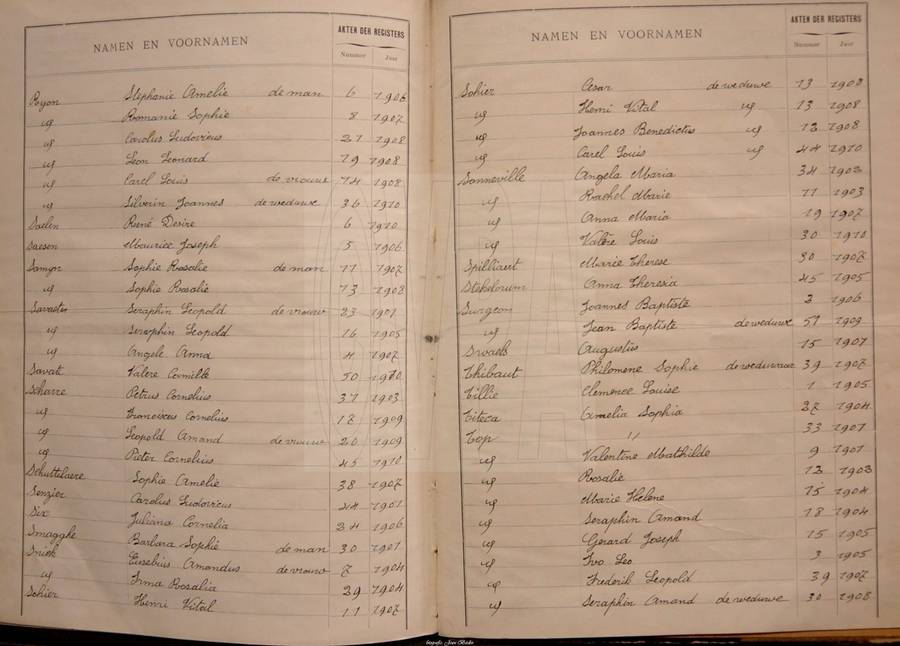 NAMEN EN VOORNAMEN AKTEN DER REGISTERS
Nummer Jaar
Ryon Stephanie Amelie de man 6 1906
id Romanie Sophie 8 1907
id Carolus Ludovicus 21 1908
id Leon Leonard 19 1908
id Carel Louis de vrouw 74 1908
id Silverin Joannes de weduwe 36 1910
Saelen René Desire 6 1910
Saeson Maurice Joseph 5 1906
Samyn Sophie Rosalie de man 11 1907
id Sophie Rosalie 13 1908
Savaete Seraphin Leopold de vrouw 23 1901
id Seraphin Leopold 16 1905
id Angele Anna 4 1907
Savat Valere Camille 50 1910
Scharre Petrus Cornelius 37 1903
id Franciscus Cornelius 18 1909
id Leopold Amand de vrouw 20 1909
id Pieter Cornelius 45 1910
Schuttelaere Sophie Amelie 38 1907
Senzier Carolus Ludovicus 44 1901
Six Juliana Cornelia 24 1906
Smagghe Barbara Sophie de man 30 1901
Sniek Eusebius Amandus de vrouw 7 1904
id Irma Rosalia 29 1904
Sohier Henri Vital 11 1907
NAMEN EN VOORNAMEN AKTEN DER REGISTERS
Nummer Jaar
Sohier Cesar de weduwe 13 1908
id Henri Vital id 13 1908
id Joannes Benedictus id 12 1908
id Carel Louis id 44 1910
Sonneville Angela Maria 34 1902
id Rachel Marie 11 1903
id Anna Maria 19 1907
id Valère Louis 30 1910
Spilliaert Marie Therese 30 1907
Stekelorum Anna Theresia 45 1905
Surgeon Joannes Baptiste 2 1906
id Jean Baptiste de weduwe 51 1909
Swaels Augustus 15 1901
Thibaut Philomene Sophie de weduwnaar 39 1907
Tillie Clemence Louise 1 1905
Titeca Amelia Sophia 27 1904
Top // 33 1901
id Valentine Mathilde 9 1901
id Rosalie 12 1903
id Marie Helene 15 1904
id Seraphin Amand 18 1904
id Gerard Joseph 15 1905
id Ivo Leo 3 1905
id Frederik Leopold 39 1907
id Seraphin Amand de weduwe 30 1908